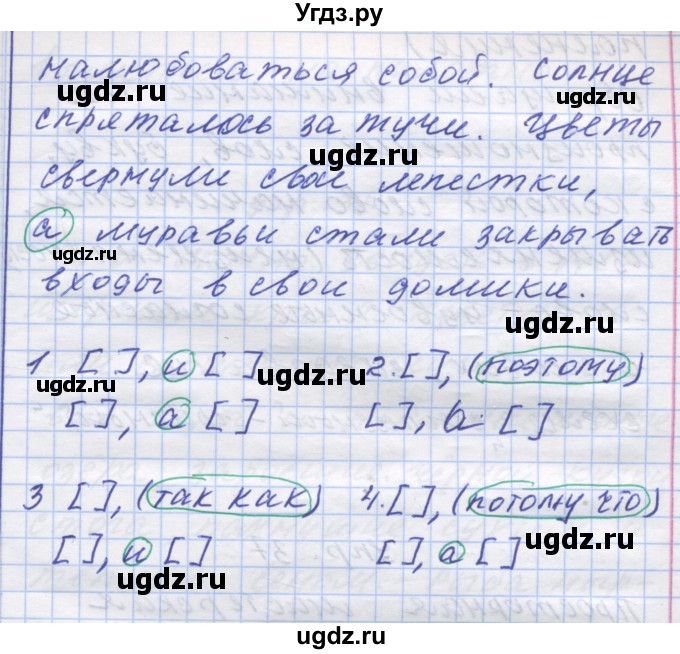 Угдз.ру
налюбоваться собой. Солнце
спряталось за тучи. Цветы
свернули свои лепестки,
а муравьи стали закрывать
входы в свои домики.
1 [ ], и [ ] 2. [ ], (поэтому)
[ ], а [ ] [ ], а [ ]
3 [ ], (так как) 4. [ ], (потому что)
[ ], и [ ] [ ], а [ ]
ugdz.ru
ugdz.ru
ugdz.ru
ugdz.ru
ugdz.ru
ugdz.ru
ugdz.ru
ugdz.ru
ugdz.ru
ugdz.ru
ugdz.ru